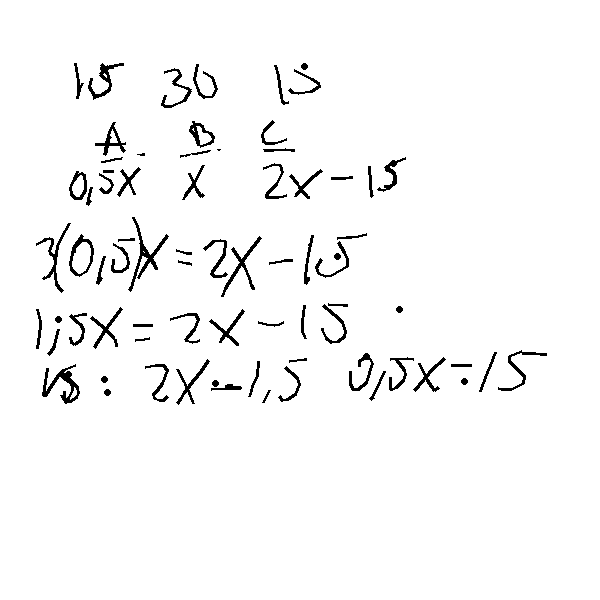 15 30 15
A B C
0,5x x 2x - 15
3(0,5)x = 2x - 15
1,5x = 2x - 15
15 : 2x - 1,5 0,5x = 15